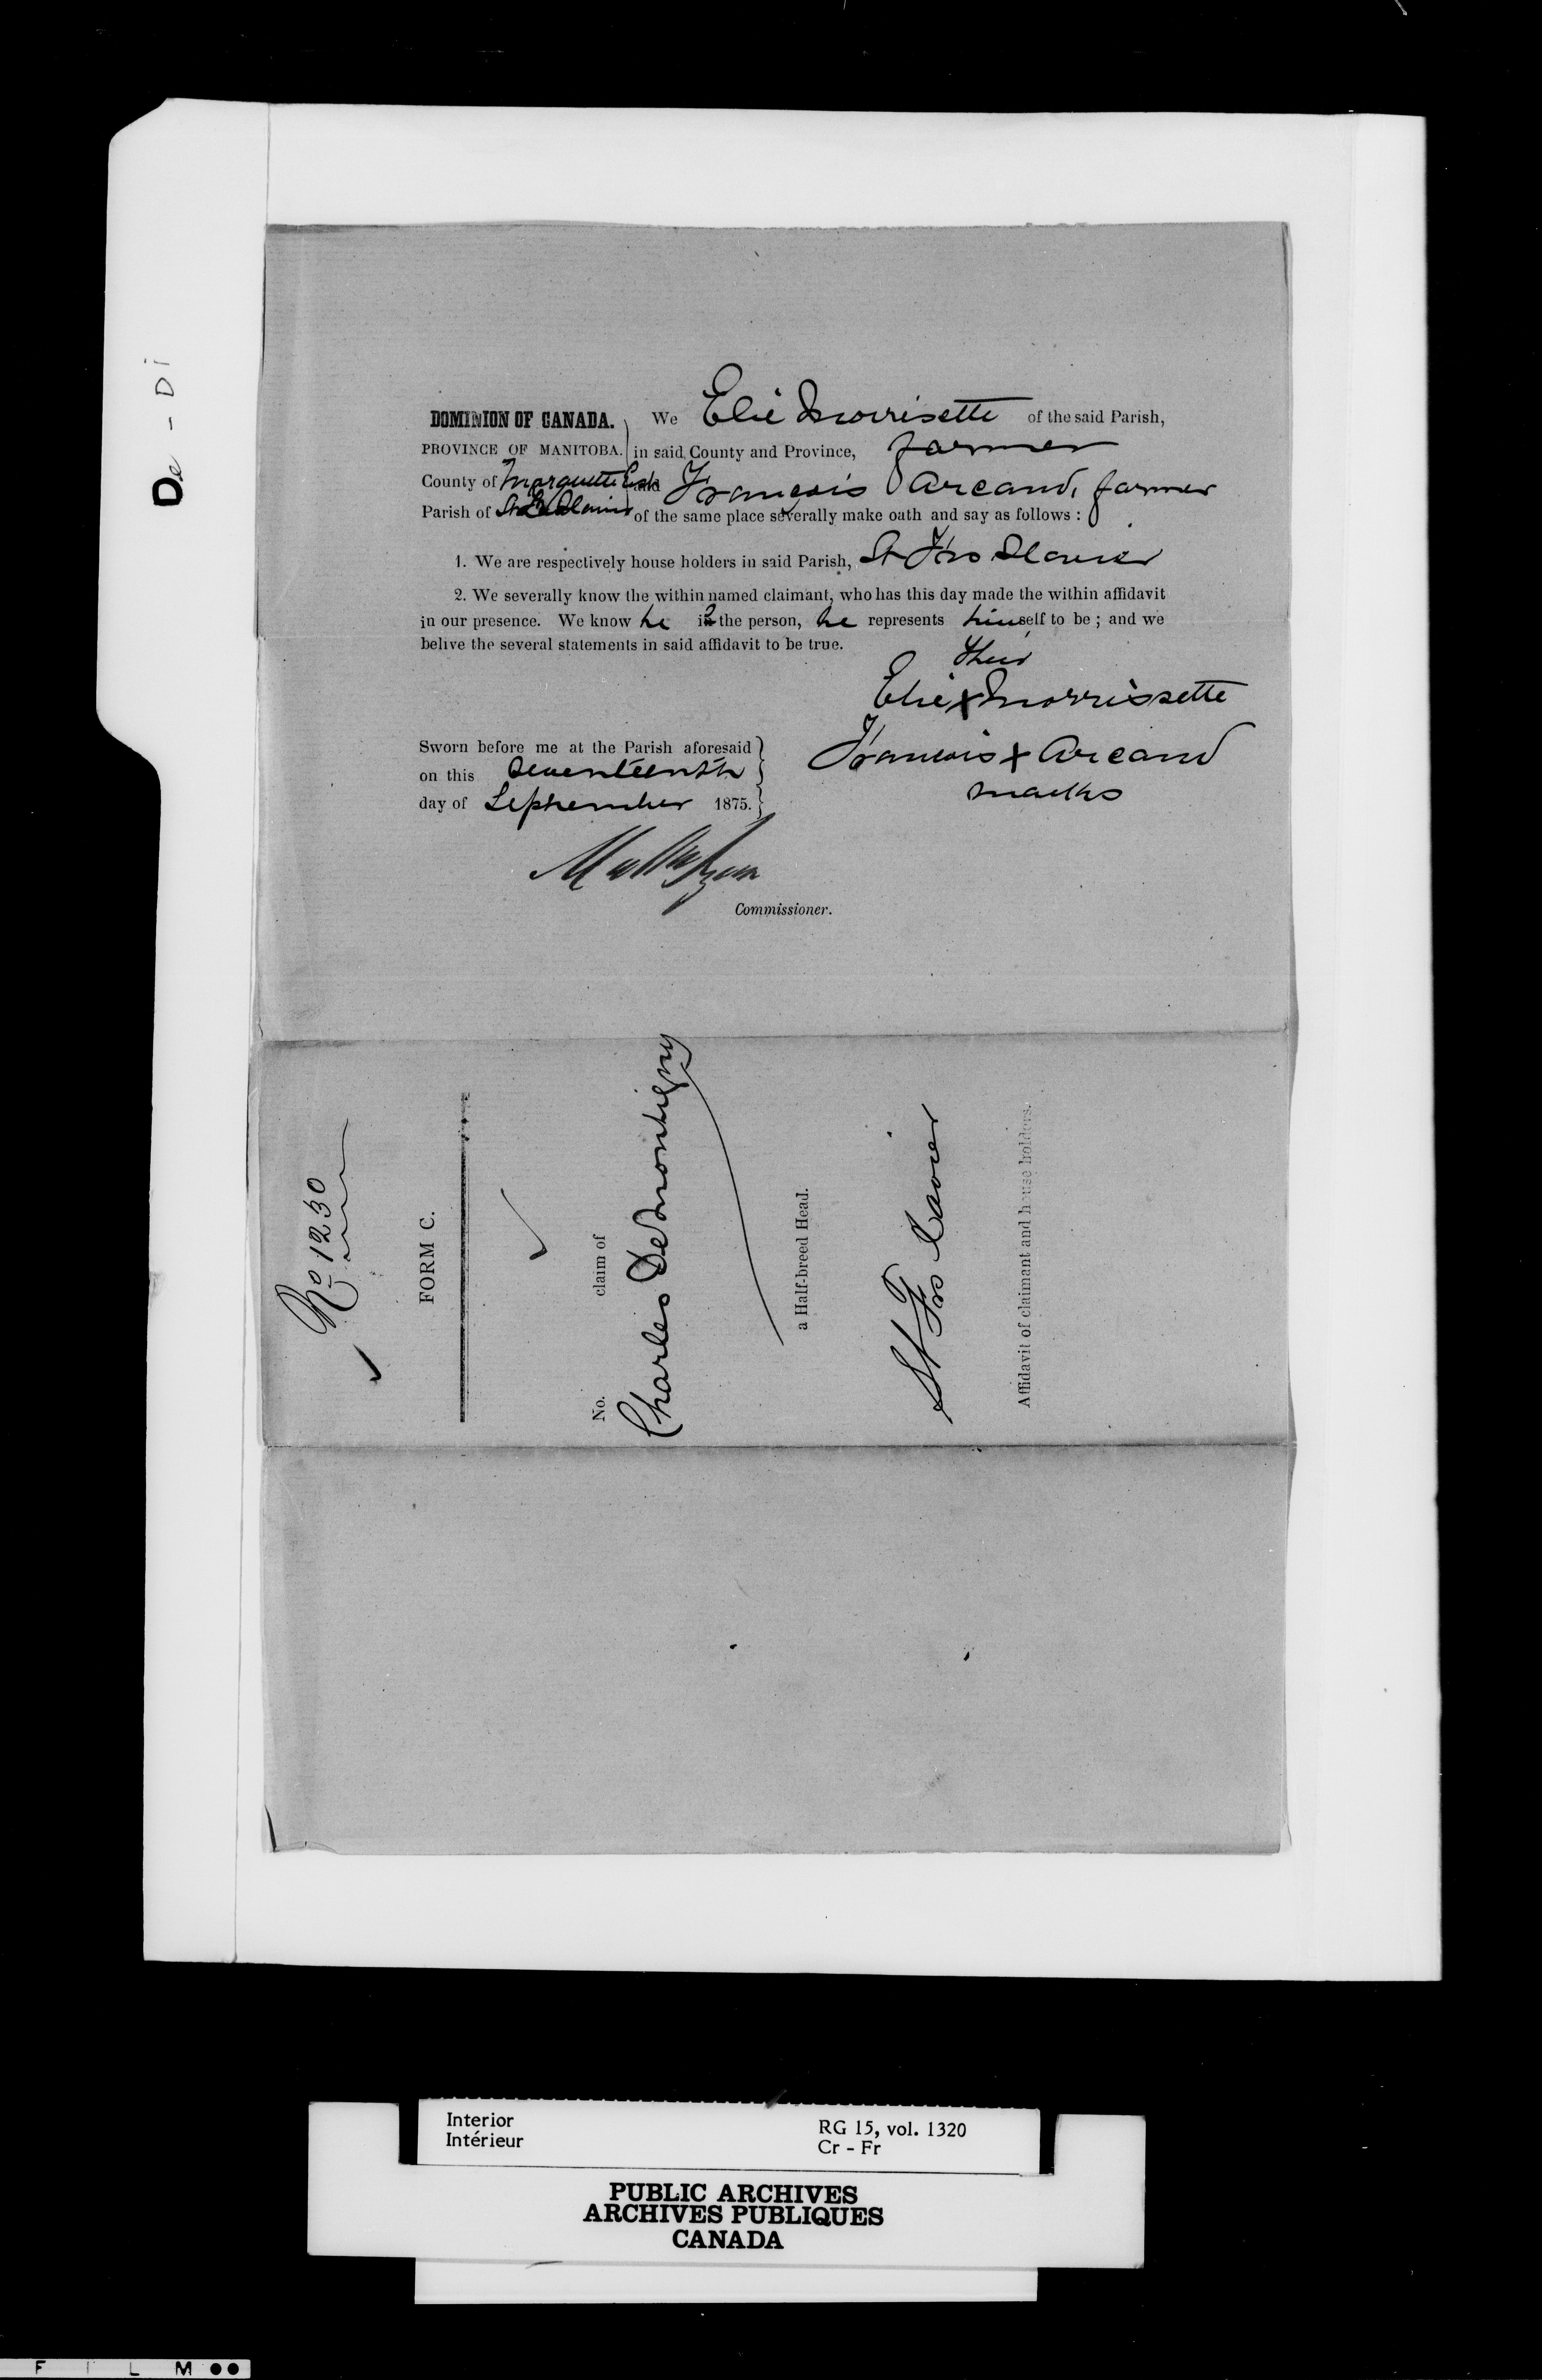 De - Di
DOMINION OF CANADA. We Elie Morrisette of the said Parish,
PROVINCE OF MANITOBA. in said County and Province, farmer
County of Marquette East and Francois Arcand, farmer
Parish of St of the same place severally make oath and say as follows :
1. We are respectively house holders in said Parish, St Frs Xavier
2. We severally know the within named claimant, who has this day made the within affidavit
in our presence. We know he is the person, he represents himself to be ; and we
belive the several statements in said affidavit to be true.
their
Elie X Morrissette
Francois X Arcand
marks
Sworn before me at the Parish aforesaid
on this Seventeenth
day of September 1875.
Commissioner.
No 1230
FORM C.
No. claim of
Charles DeMontigny
a Half-breed Head.
St Frs Xavier
Affidavit of claimant and house holders.
Interior
Intérieur
RG 15, vol. 1320
Cr - Fr
PUBLIC ARCHIVES
ARCHIVES PUBLIQUES
CANADA
F I L M